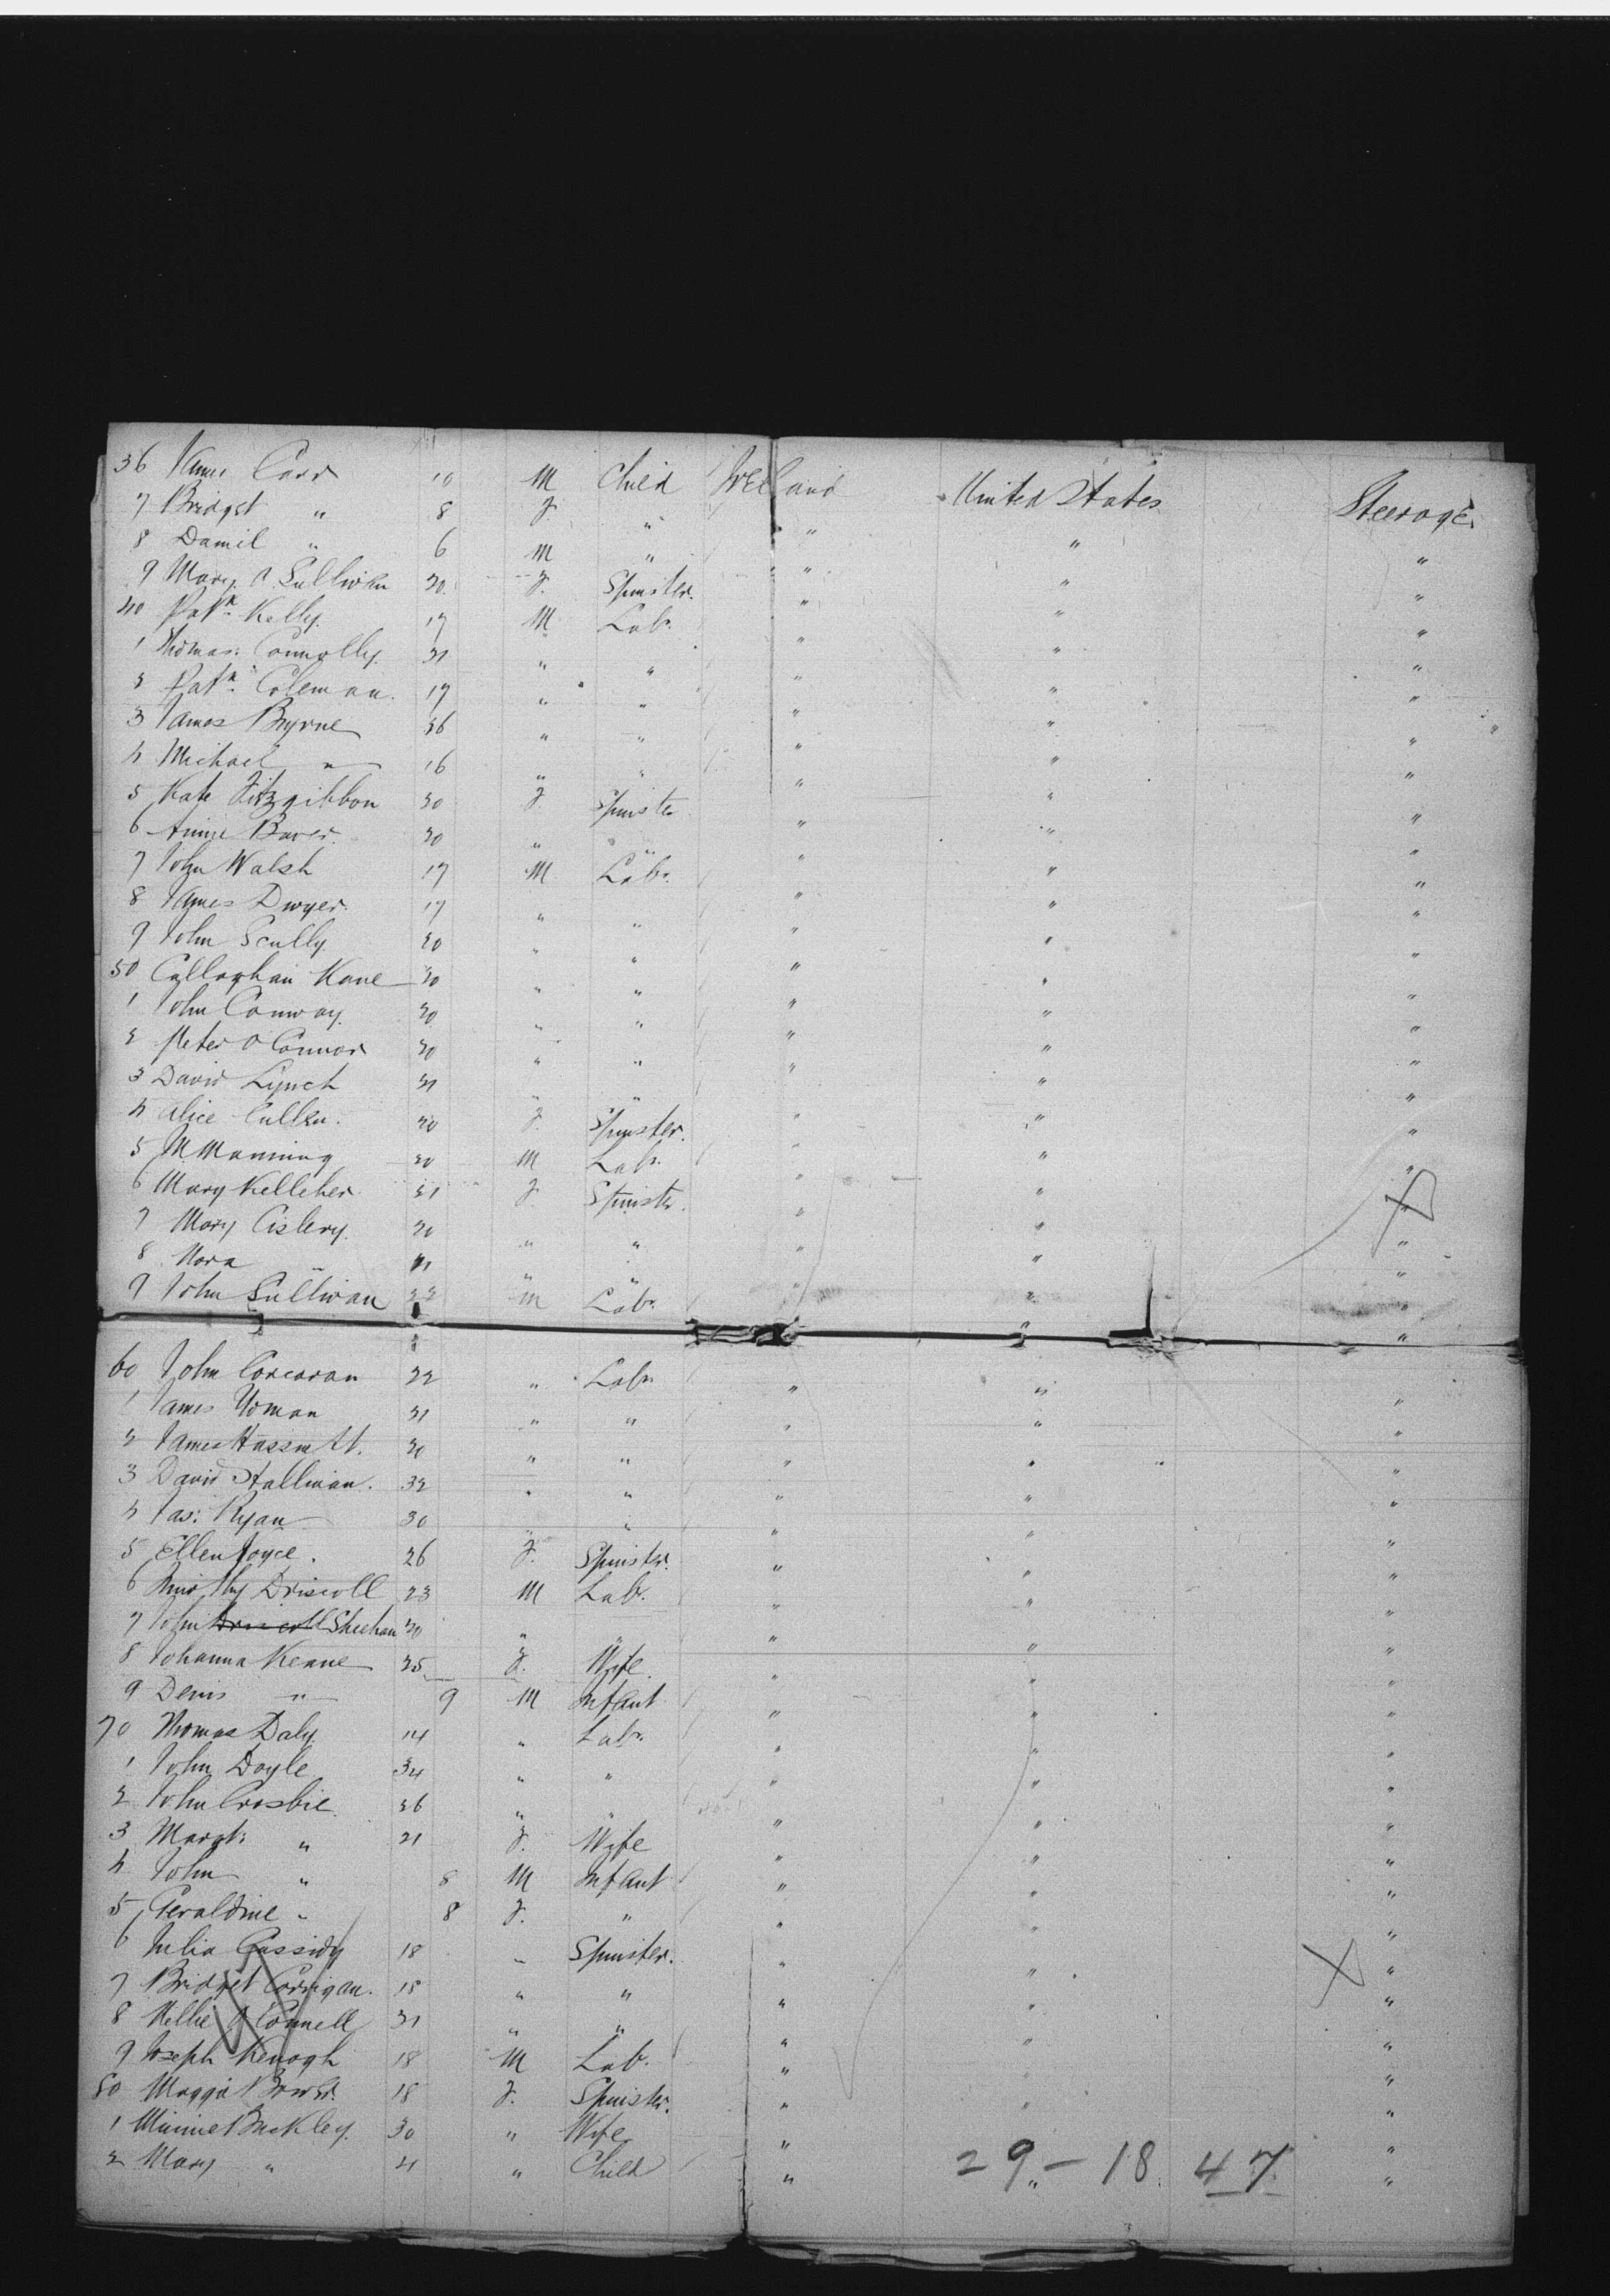 36 James Carr 10 M Child Ireland United States Steerage
7 Bridget " 8 F. " " " "
8 Daniel " 6 M " " " "
9 Mary O Sullivan 20 F. Spinster. " " "
40 Patk. Kelly. 17 M Labr. " " "
1 Thomas Connolly. 21 " " " " "
2 Patk. Coleman. 17 " " " " "
3 James Byrne 26 " " " " "
4 Michael " 16 " " " " "
5 Kate Fitzgibbon 20 F. Spinster " " "
6 Annie 20 " " " " "
7 John Walsh 17 M Labr. " " "
8 James Dwyer. 17 " " " " "
9 John Scully. 20 " " " " "
50 Callaghan Kane 20 " " " " "
1 John Conway. 20 " " " " "
2 Peter O Connor 20 " " " " "
3 David Lynch 21 " " " " "
4 Alice Cullen. 20 F. Spinster. " " "
5 M Manning 20 M Labr. " " "
6 Mary Kelleher 21 F. Spinster. " " "
7 Mary 20 " " " " "
8 Nora " " " " " "
9 John Sullivan 22 M Labr. " " "
60 John Corcoran 22 " Labr. " " "
1 James 21 " " " " "
2 James 20 " " " " "
3 David 32 " " " " "
4 Jas: Ryan 30 " " " " "
5 Ellen Joyce. 26 F. Spinster. " " "
6 Timothy Driscoll 23 M Labr. " " "
7 John Driscoll Sheehan 20 " " " " "
8 Johanna Keane 25 F. Wife. " " "
9 Denis " 9 M Infant " " "
70 Thomas Daly. 14 " Labr. " " "
1 John Doyle 34 " " " " "
2 John Crosbie. 26 " " " " "
3 Margt: " 21 F. Wife " " "
4 John " 8 M Infant " " "
5 Geraldine " 8 F. " " " "
6 Julia Cassidy 18 " Spinster. " " "
7 Bridget Corrigan. 18 " " " " "
8 Nellie O Connell 21 " " " " "
9 Joseph Keuogh 18 M Lab. " " "
80 Maggie 18 F. Spinster. " " "
1 Minnie Buckley. 30 " Wife " " "
2 Mary " 4 " Child " " "
29 - 18 47